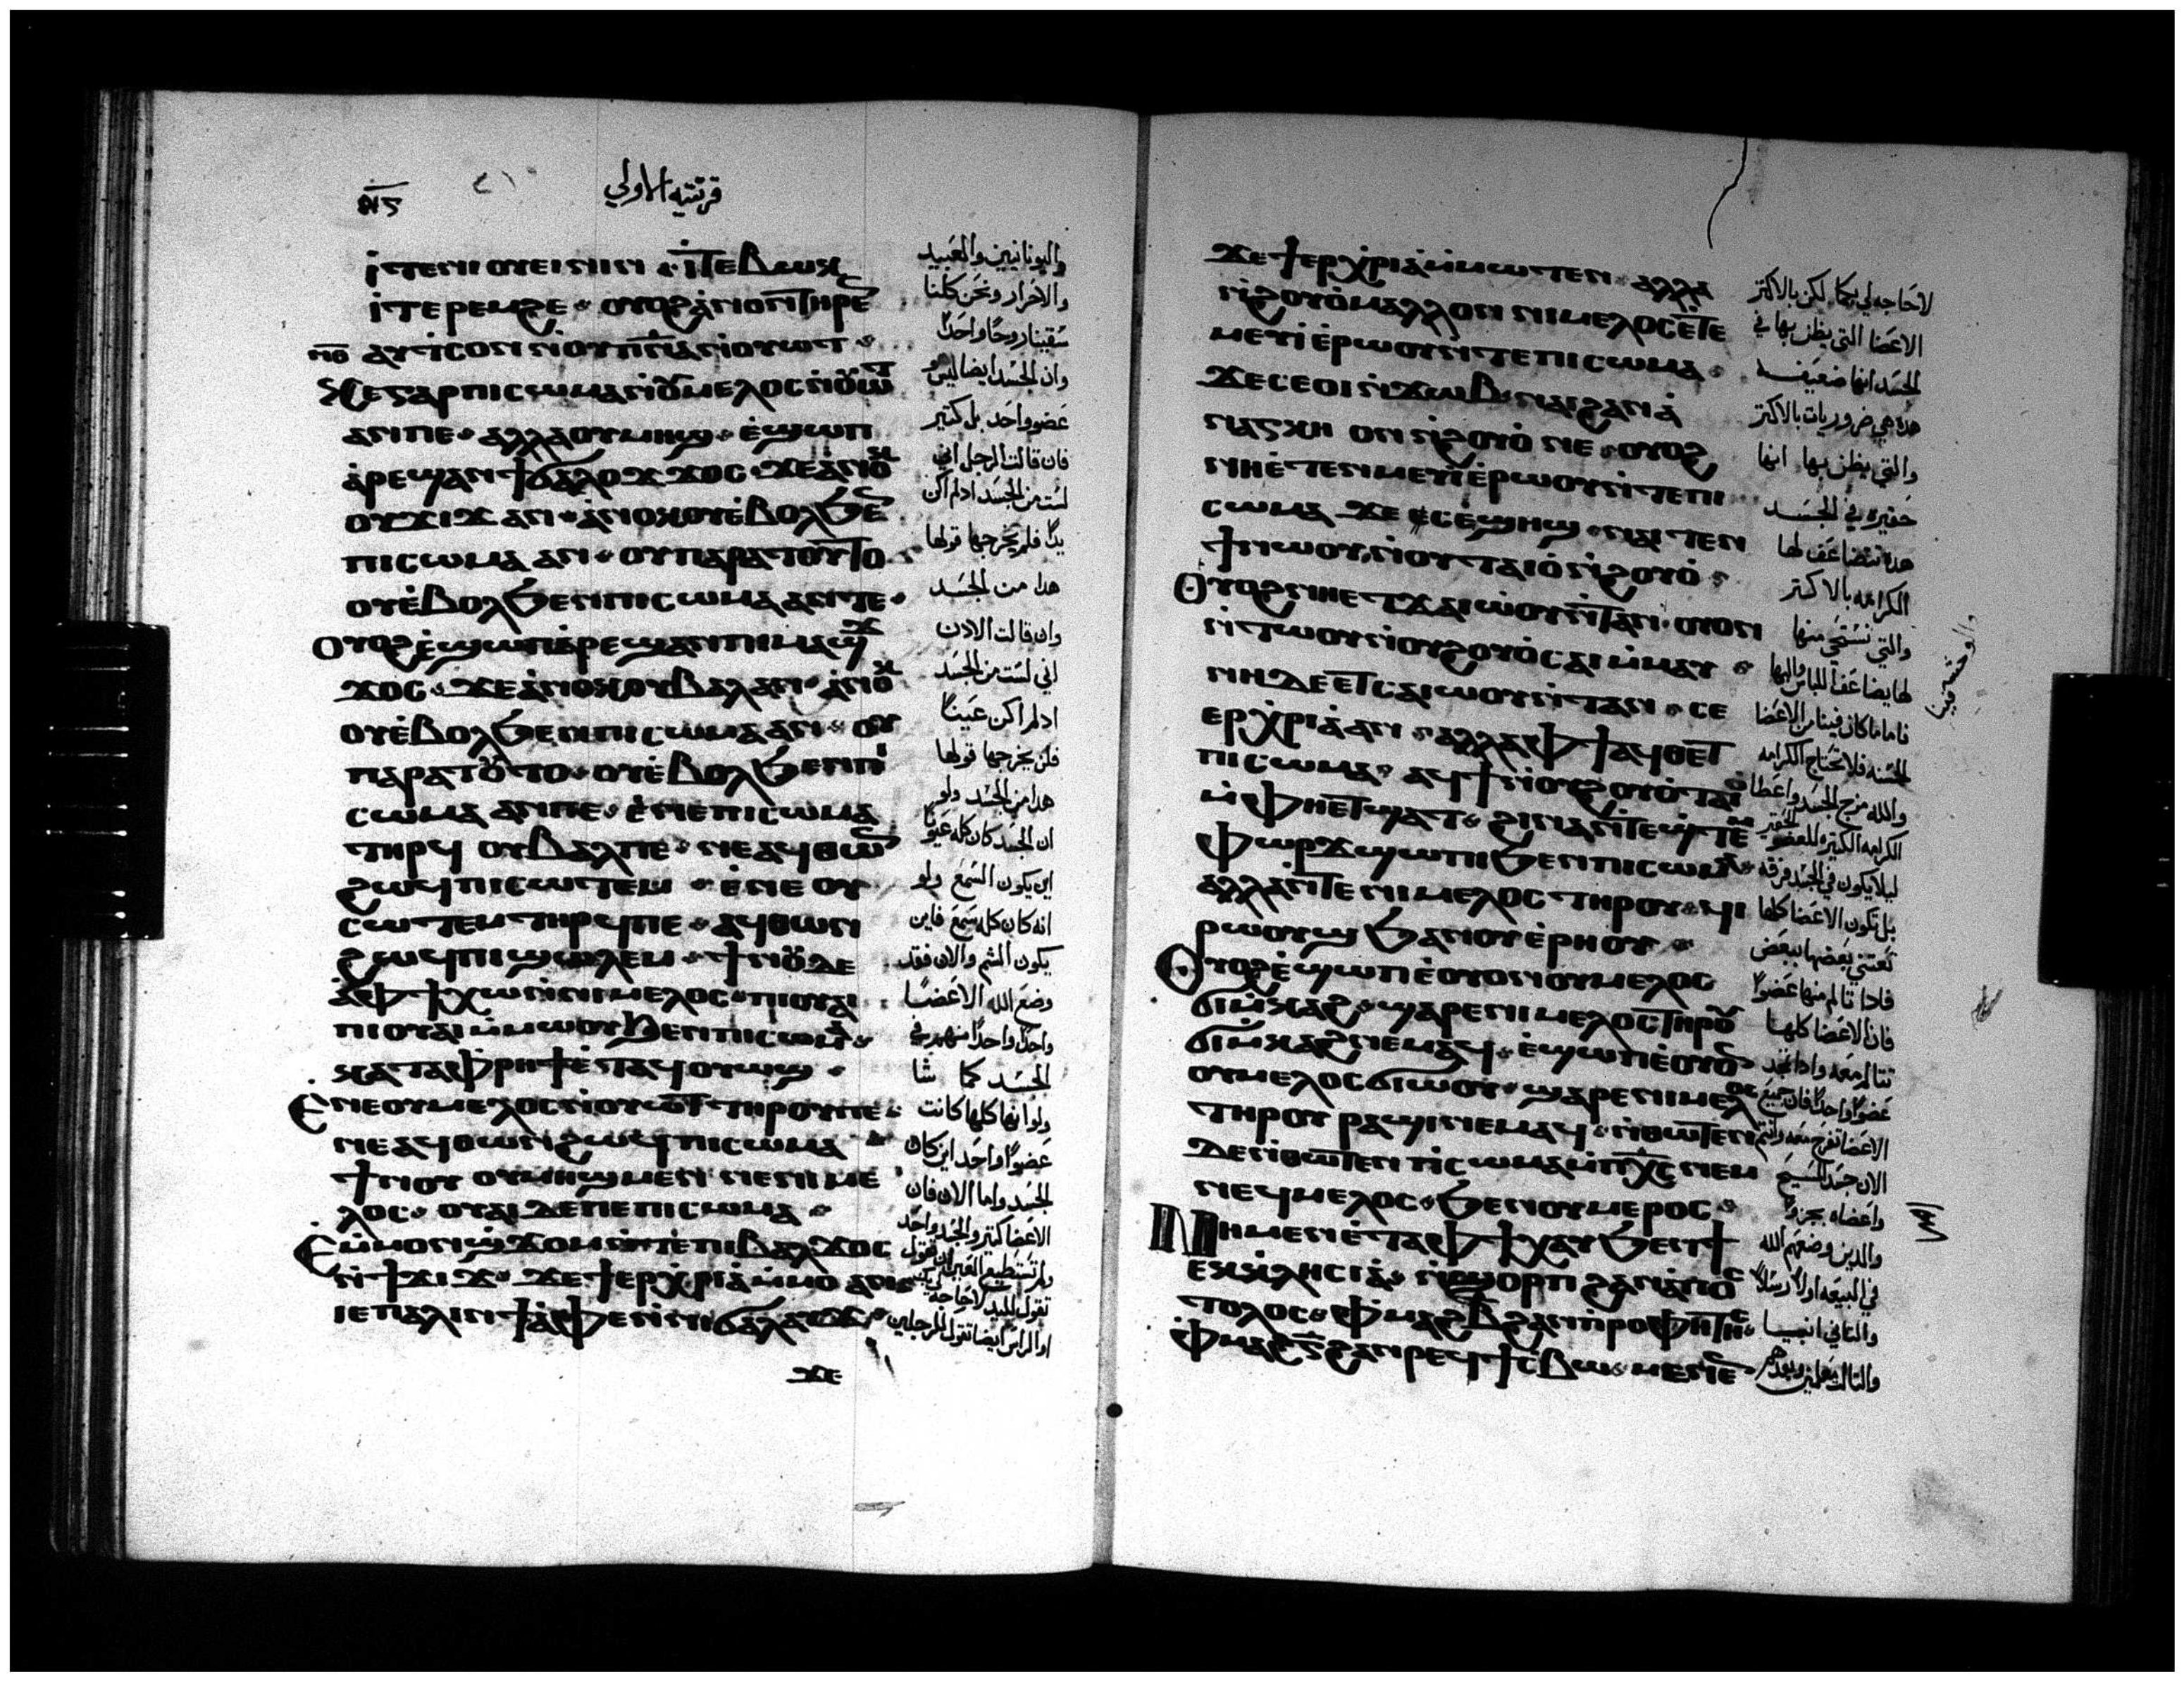 قرنتيه الاولي
ⲓⲧⲉⲛⲓⲟⲩⲉⲓⲛⲓⲛ ⲓⲧⲉⲃⲱⲕ
ⲓⲧⲉ ⲣⲉⲙϩⲉ ⲟⲩⲟϩ ⲁⲛⲟⲛ ⲧⲏⲣⲉⲛ
ⲁⲩⲧⲥⲟⲛ ⲛⲟⲩⲡⲛⲁ ⲛⲟⲩⲱⲧ
ⲕⲉ ⲅⲁⲣ ⲡⲓⲥⲱⲙⲁ ⲛⲟⲩⲙⲉⲗⲟⲥ ⲛⲟⲩⲱⲧ
ⲁⲛⲡⲉ ⲁⲗⲗⲁ ⲟⲩⲙⲏϣ ⲉϣⲱⲡ
ⲁⲣⲉϣⲁⲛ ϯϭⲁⲗⲟϫ ϫⲟⲥ ϫⲉ ⲁⲛⲟⲕ
ⲟⲩϫⲓϫ ⲁⲛ ⲁⲛⲟⲕ ⲟⲩⲉⲃⲟⲗ ϧⲉⲛ
ⲡⲓⲥⲱⲙⲁ ⲁⲛ ⲟⲩ ⲡⲁⲣⲁ ⲧⲟⲩⲧⲟ
ⲟⲩⲉⲃⲟⲗ ϧⲉⲛ ⲡⲓⲥⲱⲙⲁ ⲁⲛ ⲧⲉ
ⲟⲩⲟϩ ⲉϣⲱⲡ ⲁⲣⲉϣⲁⲛ ⲡⲓⲙⲁϣϫ
ϫⲟⲥ ϫⲉ ⲁⲛⲟⲕ ⲟⲩⲃⲁⲗ ⲁⲛ ⲁⲛⲟⲕ
ⲟⲩⲉⲃⲟⲗ ϧⲉⲛ ⲡⲓⲥⲱⲙⲁ ⲁⲛ ⲟⲩ
ⲡⲁⲣⲁ ⲧⲟⲩⲧⲟ ⲟⲩⲉⲃⲟⲗ ϧⲉⲛ ⲡⲓ
ⲥⲱⲙⲁ ⲁⲛⲡⲉ ⲉⲛⲉ ⲡⲓⲥⲱⲙⲁ
ⲧⲏⲣϥ ⲟⲩⲃⲁⲗ ⲡⲉ ⲛⲉ ⲁϥⲑⲱⲛ
ϩⲱϥ ⲡⲓⲥⲱⲧⲉⲙ ⲉⲛⲉ ⲟⲩ
ⲥⲱⲧⲉⲙ ⲧⲏⲣϥ ⲡⲉ ⲁϥⲑⲱⲛ
ϩⲱϥ ⲡⲓϣⲱⲗⲉⲙ ϯⲛⲟⲩ ⲇⲉ
ⲁ ⲫϯ ⲭⲱ ⲛⲛⲓⲙⲉⲗⲟⲥ ⲡⲓⲟⲩⲁⲓ
ⲡⲓⲟⲩⲁⲓ ⲙⲙⲱⲟⲩ ϧⲉⲛ ⲡⲓⲥⲱⲙⲁ
ⲕⲁⲧⲁ ⲫⲣⲏϯ ⲉⲧⲁϥⲟⲩⲱϣ
ⲉⲛⲉ ⲟⲩⲙⲉⲗⲟⲥ ⲛⲟⲩⲱⲧ ⲧⲏⲣⲟⲩ ⲡⲉ
ⲛⲉ ⲁϥⲑⲱⲛ ϩⲱϥ ⲡⲓⲥⲱⲙⲁ
ϯⲛⲟⲩ ⲟⲩⲙⲏϣ ⲙⲉⲛ ⲛⲉ ⲛⲓⲙⲉ
ⲗⲟⲥ ⲟⲩⲁⲓ ⲇⲉ ⲡⲉ ⲡⲓⲥⲱⲙⲁ
ⲙⲙⲟⲛ ϣϫⲟⲙ ⲛⲧⲉ ⲡⲓⲃⲁⲗ ϫⲟⲥ
ⲛϯϫⲓϫ ϫⲉ ϯⲉⲣⲭⲣⲓⲁ ⲙⲙⲟ ⲁⲛ
ⲓⲉ ⲡⲁⲗⲓⲛ ϯⲁⲫⲉ ⲛⲛⲓϭⲁⲗⲁⲩϫ
ϫⲉ
واليونانيين والعبيد
والاحرار ونحن كلنا
سقينا روحًا واحدًا
وان الجسد ايضا ليس هو
عضو واحد بل كتير
فان قالت الرجل اني
لست من الجسد ادلم اكن
يدًا فلم يخرجها قولها
هدا من الجسد
وان قالت الادن
اني لست من الجسد
ادلم اكن عينًا
فلن يخرجها قولها
هدا من الجسد ولو
ان الجسد كان كله عيونًا
اين يكون السمع ولو
انه كان كله سمع فاين
يكون الشم والان فقد
وضع الله الاعضا
واحدًا واحدًا منهم في
الجسد كما شا
ولو انها كلها كانت
عضوًا واحد اين كان
الجسد واما الان فان
الاعضا كتير والجسد واحد
ϫⲉ ϯⲉⲣⲭⲣⲓⲁ ⲙⲙⲱⲧⲉⲛ ⲁⲗⲗⲁ
ⲛϩⲟⲩⲟ ⲙⲁⲗⲗⲟⲛ ⲛⲓⲙⲉⲗⲟⲥ ⲉⲧⲉ
ⲙⲉⲩⲓ ⲉⲣⲱⲟⲩ ⲛⲧⲉ ⲡⲓⲥⲱⲙⲁ
ϫⲉ ⲥⲉⲟⲓ ⲛϫⲱⲃ ⲛⲁⲓ ϩⲁⲛⲁ
ⲛⲁⲅⲕⲏ ⲟⲛ ⲛϩⲟⲩⲟ ⲛⲉ ⲟⲩⲟϩ
ⲛⲏ ⲉⲧⲉⲛⲙⲉⲩⲓ ⲉⲣⲱⲟⲩ ⲛⲧⲉ ⲡⲓ
ⲥⲱⲙⲁ ϫⲉ ⲥⲉϣⲏϣ ⲛⲁⲓ ⲧⲉⲛ
ϯ ⲛⲱⲟⲩ ⲛⲟⲩⲧⲁⲓⲟ ⲛϩⲟⲩⲟ
ⲟⲩⲟϩ ⲛⲏ ⲉⲧϫⲁⲓⲱⲟⲩ ⲛⲧⲁⲛ ⲟⲩⲟⲛ
ⲛⲧⲱⲟⲩ ⲛⲟⲩϩⲟⲩⲟ ⲥⲁⲓ ⲙⲙⲁⲩ
ⲛⲏ ⲇⲉ ⲉⲧⲥⲁⲓⲱⲟⲩ ⲛⲧⲁⲛ ⲥⲉ
ⲉⲣⲭⲣⲓⲁ ⲁⲛ ⲁⲗⲗⲁ ⲫϯ ⲁϥⲑⲉⲧ
ⲡⲓⲥⲱⲙⲁ ⲁϥϯ ⲛⲟⲩϩⲟⲩⲟ ⲧⲁⲓⲟ
ⲙⲫⲏ ⲉⲧϣⲁⲧ ϩⲓⲛⲁ ⲛⲧⲉϣⲧⲉⲙ
ⲫⲱⲣϫ ϣⲱⲡⲓ ϧⲉⲛ ⲡⲓⲥⲱⲙⲁ
ⲁⲗⲗⲁ ⲛⲧⲉ ⲛⲓⲙⲉⲗⲟⲥ ⲧⲏⲣⲟⲩ ϥⲓ
ⲣⲱⲟⲩϣ ϧⲁ ⲛⲟⲩⲉⲣⲏⲟⲩ
ⲟⲩⲟϩ ⲉϣⲱⲡ ⲉⲟⲩⲟⲛ ⲟⲩⲙⲉⲗⲟⲥ
ϭⲓⲙⲕⲁϩ ϣⲁⲣⲉ ⲛⲓⲙⲉⲗⲟⲥ ⲧⲏⲣⲟⲩ
ϭⲓⲙⲕⲁϩ ⲛⲉⲙⲁϥ ⲉϣⲱⲡ ⲉⲟⲩⲟⲛ
ⲟⲩⲙⲉⲗⲟⲥ ϭⲓⲱⲟⲩ ϣⲁⲣⲉ ⲛⲓⲙⲉⲗⲟⲥ
ⲧⲏⲣⲟⲩ ⲣⲁϣⲓ ⲛⲉⲙⲁϥ ⲛⲑⲱⲧⲉⲛ
ⲇⲉ ⲛⲑⲱⲧⲉⲛ ⲡⲥⲱⲙⲁ ⲙⲡⲭⲥ ⲛⲉⲙ
ⲛⲉϥⲙⲉⲗⲟⲥ ϧⲉⲛ ⲟⲩⲙⲉⲣⲟⲥ
ⲛⲏ ⲙⲉⲛ ⲉⲧⲁ ⲫϯ ⲭⲁⲩ ϧⲉⲛ ϯ
ⲉⲕⲕⲗⲏⲥⲓⲁ ⲛϣⲟⲣⲡ ϩⲁⲛⲁⲡⲟⲥ
ⲧⲟⲗⲟⲥ ⲫⲙⲁϩⲃ ϩⲁⲛⲡⲣⲟⲫⲏⲧⲏⲥ
ⲫⲙⲁϩⲅ ϩⲁⲛⲣⲉϥϯⲥⲃⲱ ⲙⲉⲛⲉⲛⲥ
لا حاجه لي بكما لكن بالاكتر
الاعضا التي يظن بها في
الجسد انها ضعيفه
هده هي ضروريات بالاكتر
والتي يظن بها انها
حقيره في الجسد
هده نتضاعف لها
الكرامه بالاكتر
والتي نستحي منها
لها يضاعف اللباس والبها
فاما ما كان فينا من الاعضا
الحسنه فلا تحتاج الكرامه
والله مزج الجسد واعطا
ليلا يكون في الجسد فرقه
بل تكون الاعضا كلها
تعتني بعضها ببعض
فادا تالم منها عضوًا
فان الاعضا كلها
الان جسد المسيح
والدين وضعهم الله
في البيعه اولًا رسلًا
والتاني انبيا